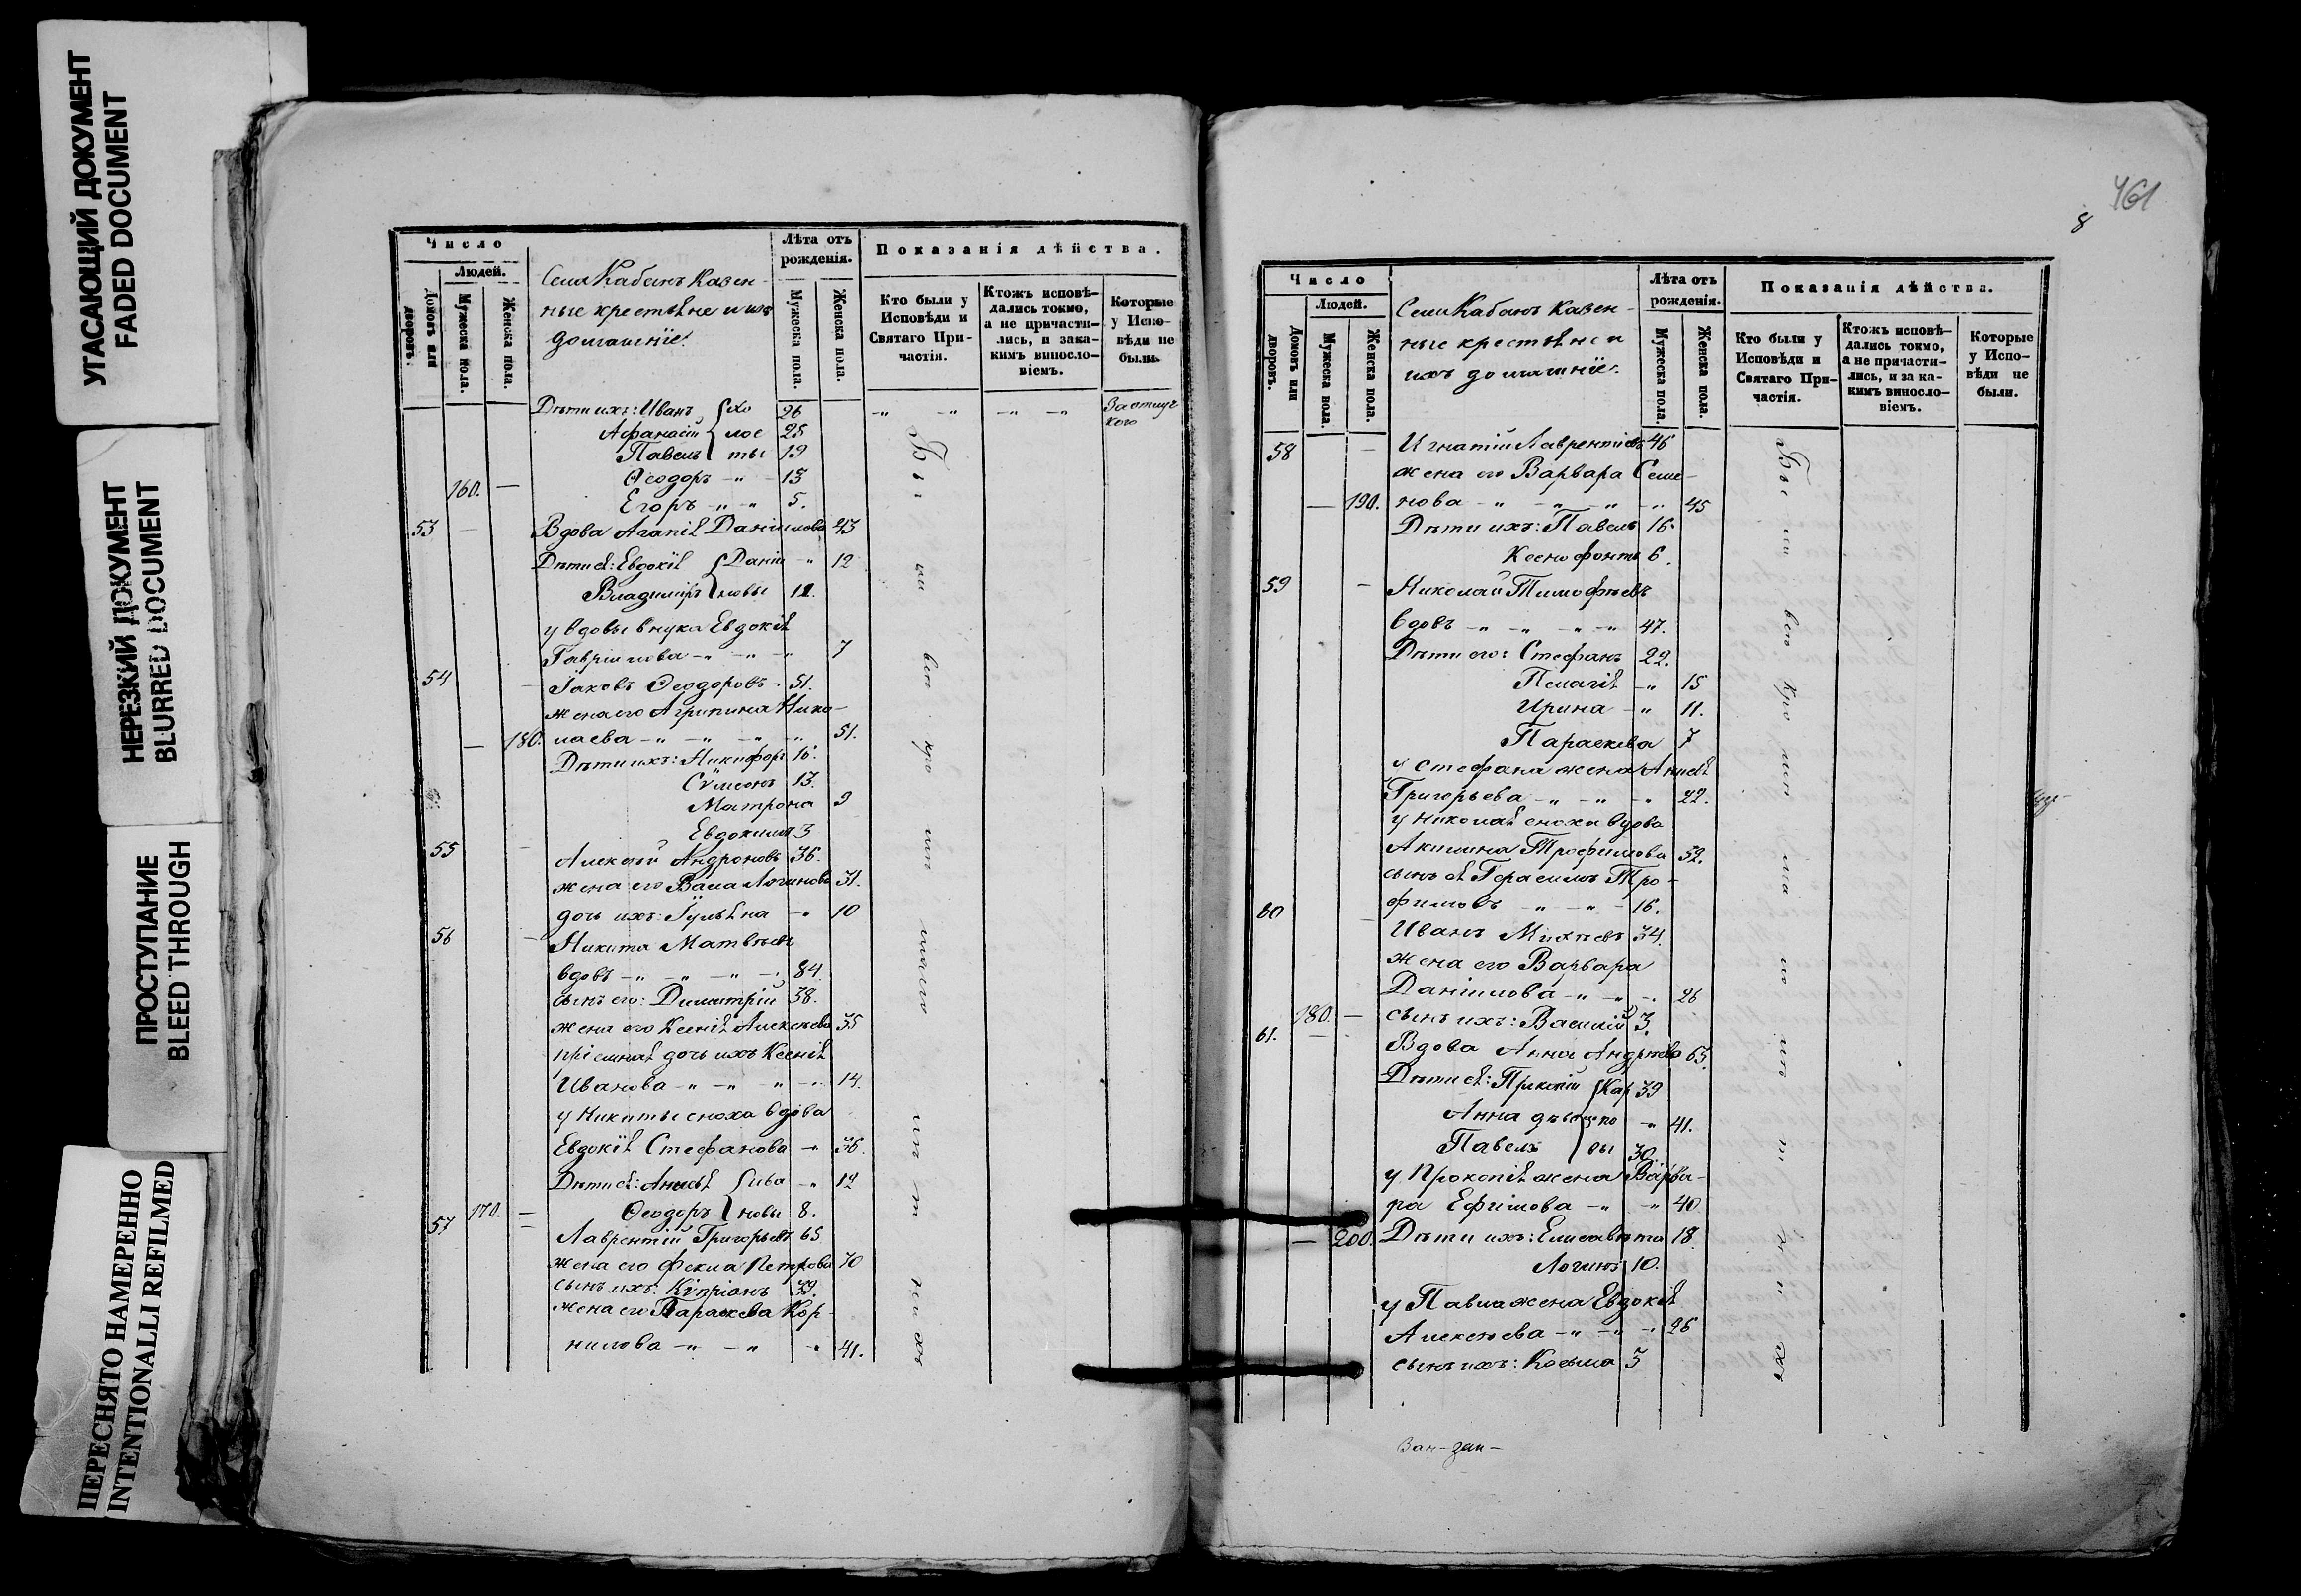 УГАСАЮЩИЙ ДОКУМЕНТ
FADED DOCUMENT
НЕРЕЗКИЙ ДОКУМЕНТ
BLURRED DOCUMENT
ПРОСТУПАНИЕ
BLEED THROUGH
ПЕРЕСНЯТО НАМЕРЕННО
INTENTIONALLI REFILMED
Число
Людей.
Домовъ или дворовъ.
Мужеска пола.
Женска пола.
Села Кабанъ Казен-
ные крестьяне и ихъ
домашніе.
Лѣта отъ рожденія.
Мужеска пола.
Женска пола.
Показанія дѣйства.
Кто были у Исповѣди и Святаго Причастія.
Ктожъ исповѣ-дались токмо, а не причасти-лись, и зака-кимъ винословіемъ.
Которые у Испо-вѣди не были.
Дѣти ихъ: Иванъ 26
Афанасій 25
Павелъ 19
Ѳеодоръ 13
160. Егоръ 5.
53 Вдова Агапія Даніилова 43
Дѣти ея: Евдокія Даніи 12
Владиміръ ловы 11.
у вдовы внука Евдокія
Гавріилова 7
54 Іаковъ Ѳеодоровъ 51.
жена его Агрипина Нико-
180. лаева 51.
Дѣти ихъ: Никифоръ 16.
Сѵмеонъ 13.
Матрона 9
Евдокимъ 3
55 Алексій Андроновъ 36.
жена его Васа Логинова 31.
дочь ихъ: Іульяна 10
56 Никита Матвѣевъ
вдовъ 84.
сынъ его: Димитрій 38.
жена его Ксенія Алексѣева 35
пріемная дочь ихъ Ксенія
Иванова 14.
у Никиты сноха вдова
Евдокія Стефанова 36.
Дѣти ея: Анисія Ива 12
170. Ѳеодоръ новы 8.
57 Лаврентій Григорьевъ 65
жена его Фекла Петрова 70
сынъ ихъ: Кипріанъ 39.
жена его Параскева Кор-
нилова 41.
461
8
Число
Людей.
Домовъ или дворовъ.
Мужеска пола.
Женска пола.
Села Кабанъ Казен-
ные крестьяне и
ихъ домашніе.
Лѣта отъ рожденія.
Мужеска пола.
Женска пола.
Показанія дѣйства.
Кто были у Исповѣди и Святаго При-частія.
Ктожъ исповѣ-дались токмо, а не причасти-лись, и за ка-кимъ винословіемъ.
Которые у Испо-вѣди не были.
58 Игнатій Лаврентіевъ 46
жена его Варвара Семе-
190. нова 45
Дѣти ихъ: Павелъ 16.
Ксенофонтъ 6.
59 Николай Тимофѣевъ
вдовъ 47.
Дѣти его: Стефанъ 22.
Пелагія 15
Ирина 11.
Параскева 7
у Стефана жена Анисія
Григорьева 22.
у Николая сноха вдова
Акилина Трофимова 52.
сынъ ея Герасимъ Тро-
фимовъ 16.
60 Иванъ Михѣевъ 34.
жена его Варвара
Даніилова 26
180. сынъ ихъ: Василій 3.
61. Вдова Анна Андрѣева 65.
Дѣти ея: Прокопій Кар 39
Анна дѣвица по 41.
Павелъ вы 30.
у Прокопія жена Варва-
ра Ефимова 40
200. Дѣти ихъ: Елисавета 18.
Логинъ 10.
у Павла жена Евдокія
Алексѣева 26
сынъ ихъ: Косьма 3